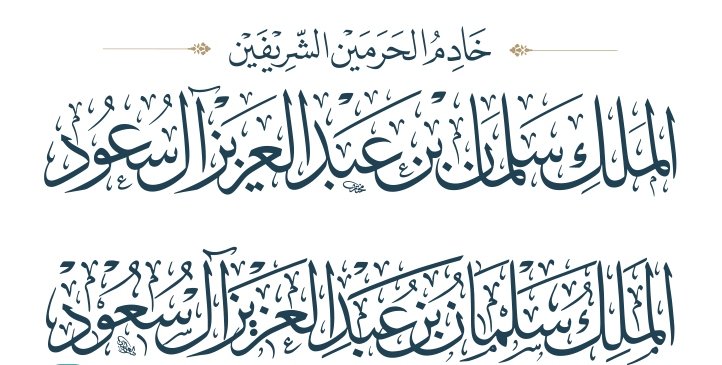 خَادِمُ الحَرَمَيْن الشَّرِيفَيْن
الملك سلمان بن عبد العزيز آل سعود
الملك سلمان بن عبد العزيز آل سعود